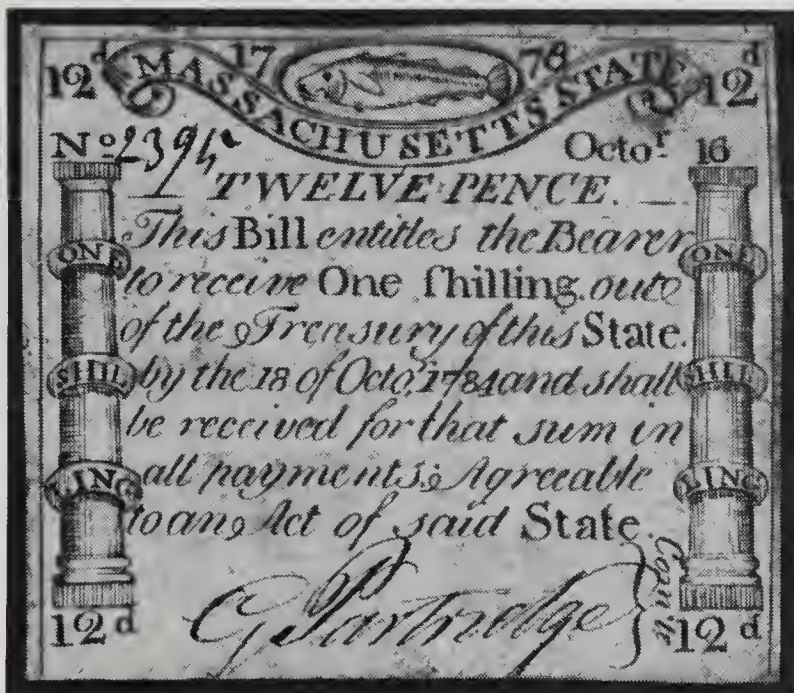 12d 17 78 12d
MASSACHUSETTS STATE
No 2394 Octor 16
TWELVE PENCE.
This Bill entitles the Bearer
to receive One ſhilling. oute
of the Treasury of this State.
by the 18 of Octor. 1784 and shall
be received for that sum in
all payments; Agreeable
to an Act of said State.
ONE ONE
SHIL SHIL
LING LING
G Partridge
12d 12d